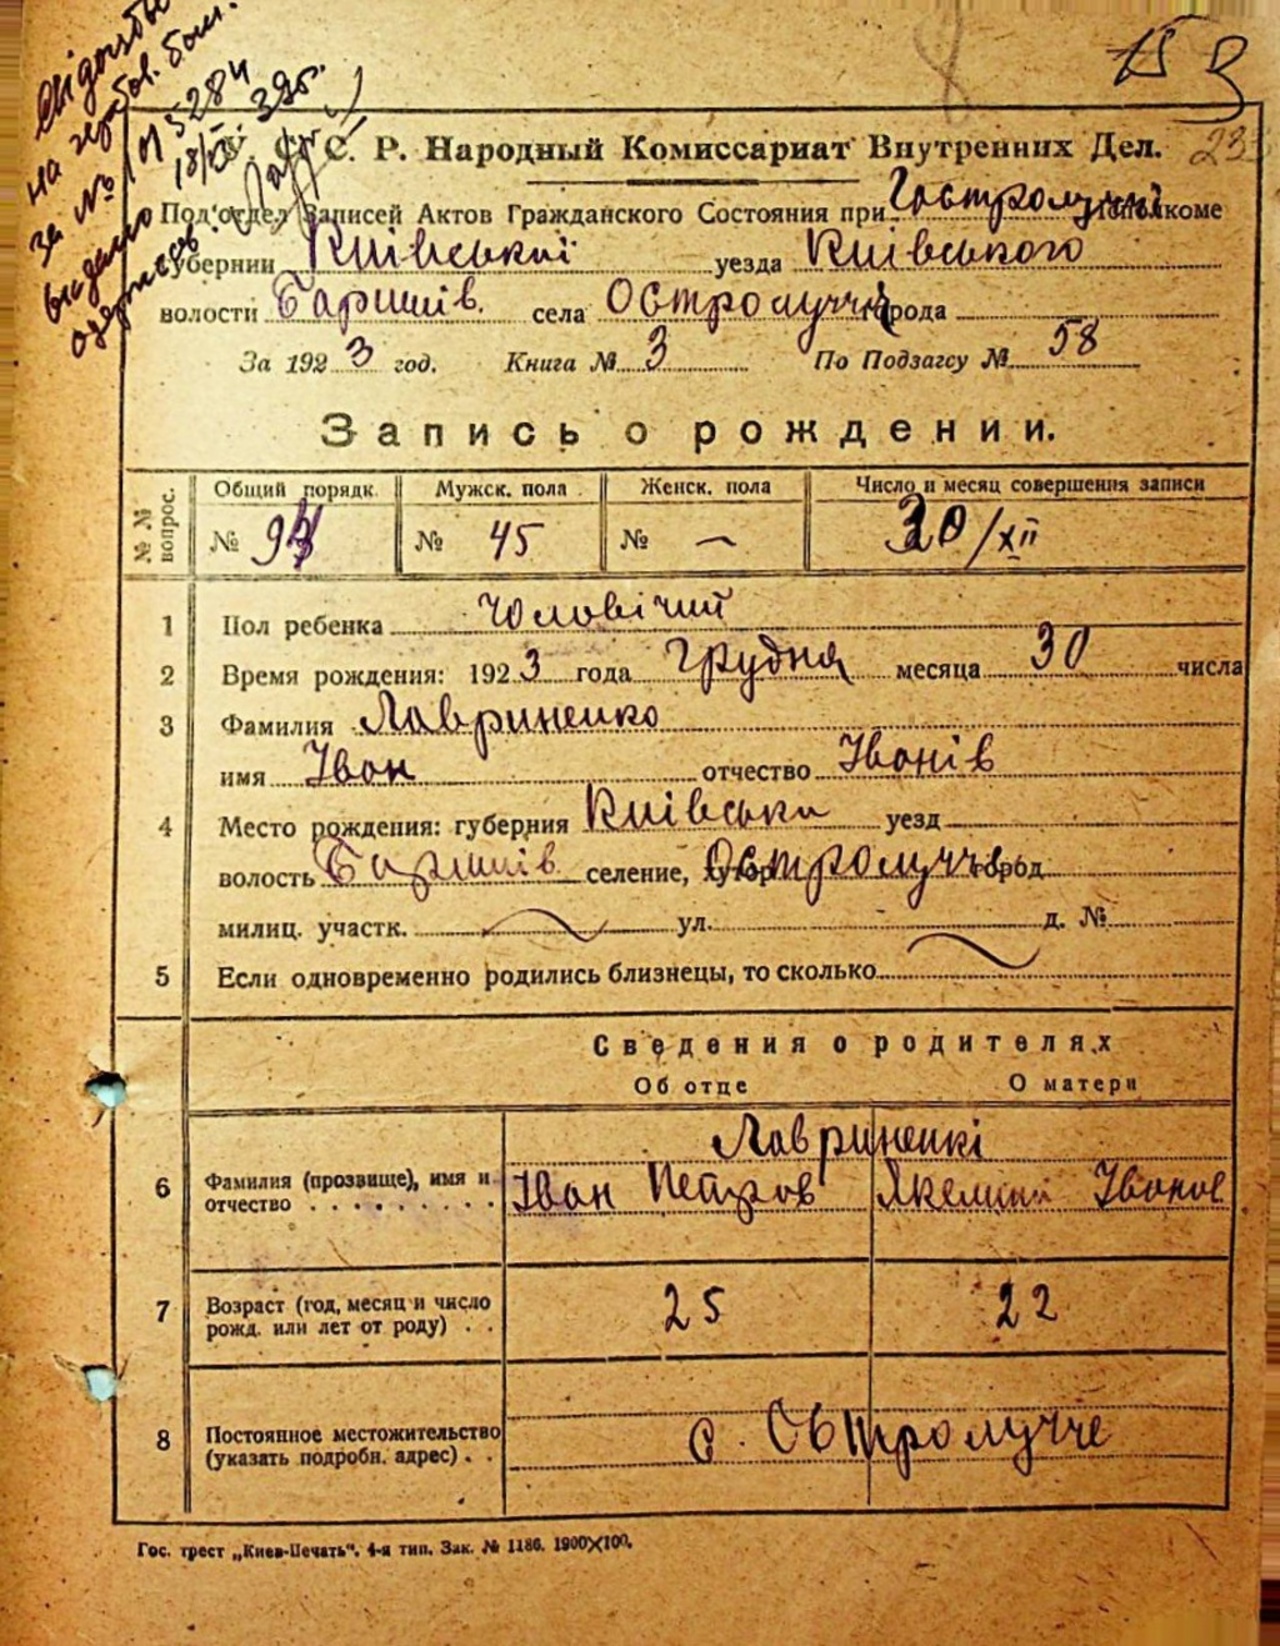 на
за № 015284
18/
видано
8
15 3
23
С. Р. Народный Комиссариат Внутренних Дел.
Подотдел Записей Актов Гражданского Состояния при Исполкоме
Губернии Київської уезда Київського
волости Баришів. села Остролуччя города
За 1923 год. Книга № 3 По Подзагсу № 58
Запись о рождении.
№ № вопрос.
Общий порядк. Мужск. пола Женск. пола Число и месяц совершения записи
№ № 45 № — 30/XII
1 Пол ребенка Чоловічий
2 Время рождения: 1923 года Грудня месяца 30 числа
3 Фамилия Лавриненко
имя Іван отчество Іванів
4 Место рождения: губерния Київська уезд
волость Баришів селение, хутор Остролучче город
милиц. участк. ул. д. №
5 Если одновременно родились близнецы, то сколько
Сведения о родителях
Об отце О матери
Лавриненкі
6 Фамилия (прозвище), имя и отчество Іван Петров Іванов
7 Возраст (год, месяц и число рожд. или лет от роду) 25 22
8 Постоянное местожительство (указать подробн. адрес) с. Остролучче
Гос. трест „Киев-Печать“. 4-я тип. Зак. № 1186. 1900×100.